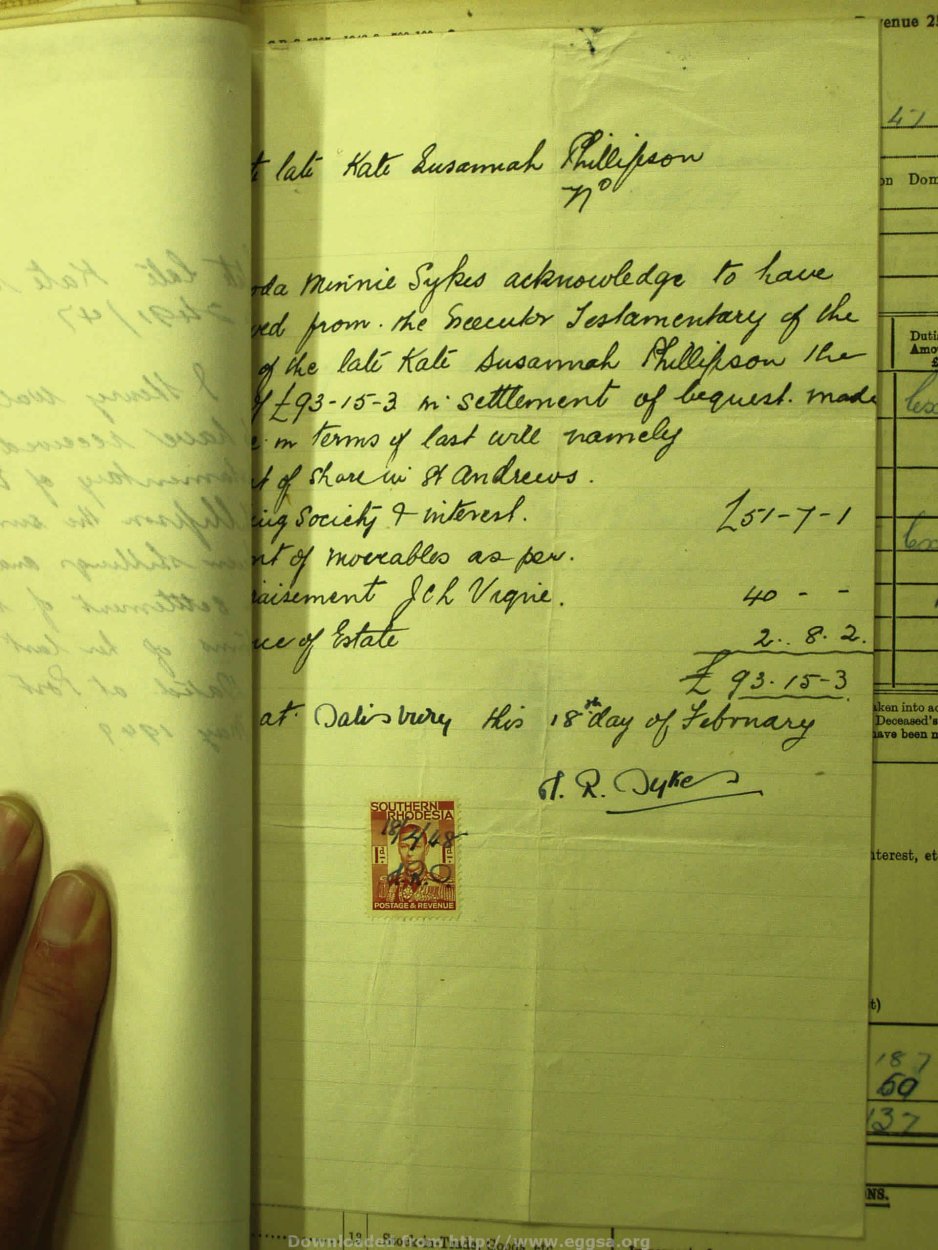 late Kate Susannah Phillipson
No
Minnie Sykes acknowledge to have
from the Executor Testamentary of the
of the late Kate Susannah Phillipson the
£93-15-3 in settlement of bequest made
in terms of last will namely
of share in St Andrews.
Society & interest. £51-7-1
of moveables as per.
J C L Vigne. 40 - -
of Estate 2. 8. 2.
£ 93-15-3
at Salisbury this 18th day of February
R. Sykes
SOUTHERN
RHODESIA
18/2/48
1d 1d
POSTAGE & REVENUE
enue 2
47
on Dom
Duti
Amo
£
aken into ac
Deceased's
have been n
nterest, et
t)
187
50
137
NS.
Downloaded from http://www.eggsa.org